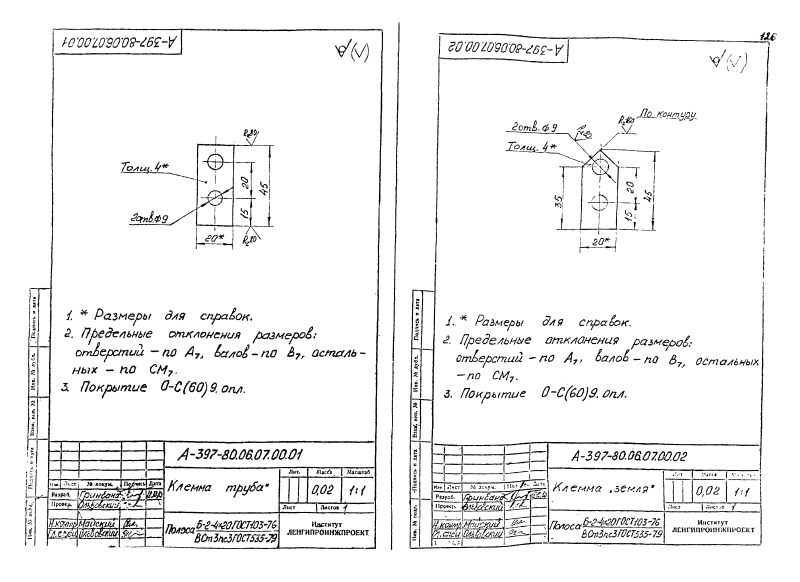 А-397-80.06.07.00.01
Rz80
Толщ. 4*
20
45
15
2отв. ф9
20*
Rz80
1. * Размеры для справок.
2. Предельные отклонения размеров:
отверстий – по А7, валов – по В7, осталь-
ных – по СМ7.
3. Покрытие О-С(60)9. опл.
Подпись и дата
Инв. № дубл.
Взам. инв. №
Подпись и дата
Инв. № подл.
А-397-80.06.07.00.01
Изм Лист № докум. Подпись Дата
Разраб.
Провер.
Н.контр Майский
Клемма труба"
Лит. Масса Масштаб
0,02 1:1
Лист Листов 1
Полоса Б-2-4×20 ГОСТ103-76
ВСт3пс3 ГОСТ535-79
Институт
ЛЕНГИПРОИНЖПРОЕКТ
126
А-397-80.06.07.00.02
Rz80 По контуру
2отв. ф9
Rz80
Толщ. 4*
35
20
45
15
20*
1. * Размеры для справок.
2. Предельные отклонения размеров:
отверстий – по А7, валов – по В7, остальных
– по СМ7.
3. Покрытие О-С(60)9. опл.
Подпись и дата
Инв. № дубл.
Взам. инв. №
Подпись и дата
Инв. № подл.
А-397-80.06.07.00.02
Изм Лист № докум. Дата
Разраб.
Провер.
Н.контр Майский
Клемма „земля"
Лит. Масса Масштаб
0,02 1:1
Лист Листов 1
Полоса Б-2-4×20 ГОСТ103-76
ВСт3пс3 ГОСТ535-79
Институт
ЛЕНГИПРОИНЖПРОЕКТ